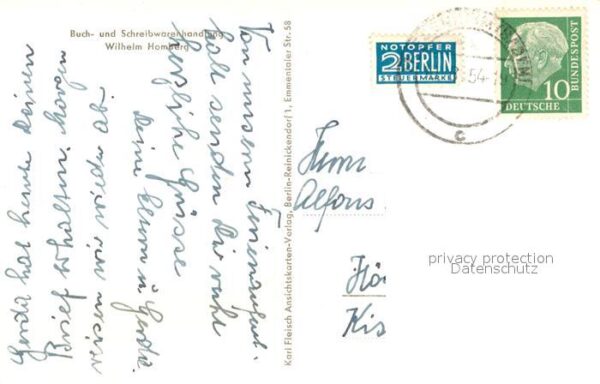 Buch- und Schreibwarenhandlung
Wilhelm Homberg
Von unserem Ferienaufent-
halt senden Dir recht
herzliche Grüsse
Deine Eltern u. Gerda.
Gerda hat heute Deinen
Brief erhalten. Morgen
reisen wir wieder ab.
Karl Fleisch Ansichtskarten-Verlag, Berlin-Reinickendorf 1, Emmentaler Str. 58
NOTOPFER
2 BERLIN
STEUERMARKE
54-1
c
10
DEUTSCHE
BUNDESPOST
Herrn
Alfons
Kis
privacy protection
Datenschutz